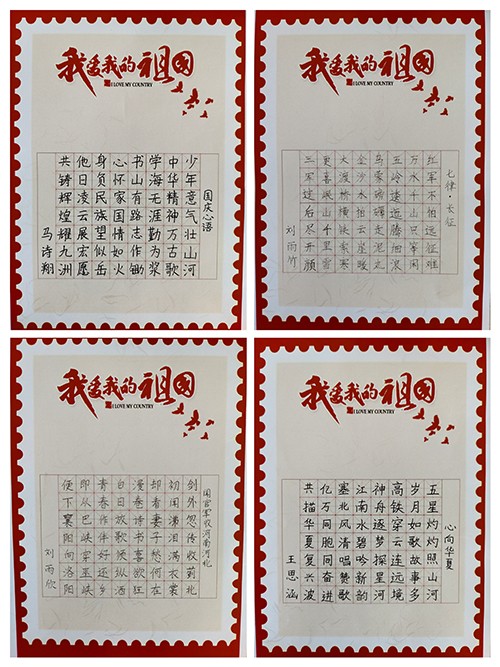 我爱我的祖国
I LOVE MY COUNTRY
国庆心语
少年意气壮山河
中华精神万古歌
学海无涯勤为桨
书山有路志作锄
心怀家国情如火
身负民族望似岳
他日凌云展宏愿
共铸辉煌耀九洲
马诗翔
我爱我的祖国
I LOVE MY COUNTRY
七律·长征
红军不怕远征难
万水千山只等闲
五岭逶迤腾细浪
乌蒙磅礴走泥丸
金沙水拍云崖暖
大渡桥横铁索寒
更喜岷山千里雪
三军过后尽开颜
刘雨竹
我爱我的祖国
I LOVE MY COUNTRY
闻官军收河南河北
剑外忽传收蓟北
初闻涕泪满衣裳
却看妻子愁何在
漫卷诗书喜欲狂
白日放歌须纵酒
青春作伴好还乡
即从巴峡穿巫峡
便下襄阳向洛阳
刘雨欣
我爱我的祖国
I LOVE MY COUNTRY
心向华夏
五星灼灼照山河
岁月如歌故事多
高铁穿云连远境
神舟逐梦探星河
江南水碧吟新韵
塞北风清唱赞歌
亿万同胞同奋进
共描华夏复兴波
王思涵